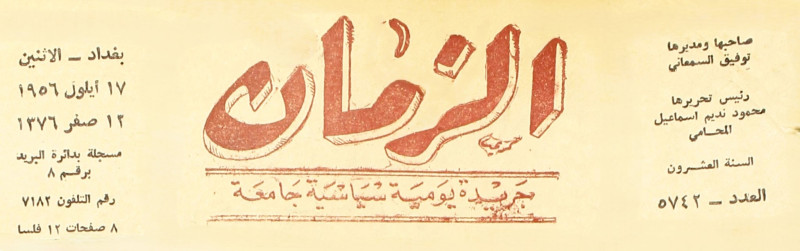 صاحبها ومديرها
توفيق السمعاني
رئيس تحريرها
محمود نديم اسماعيل
المحامي
السنة العشرون
العدد - ٥٧٤٢
الزمان
جريدة يومية سياسية جامعة
بغداد - الاثنين
١٧ أيلول ١٩٥٦
١٢ صفر ١٣٧٦
مسجلة بدائرة البريد
برقم ٨
رقم التلفون ٧١٨٢
٨ صفحات ١٢ فلسا